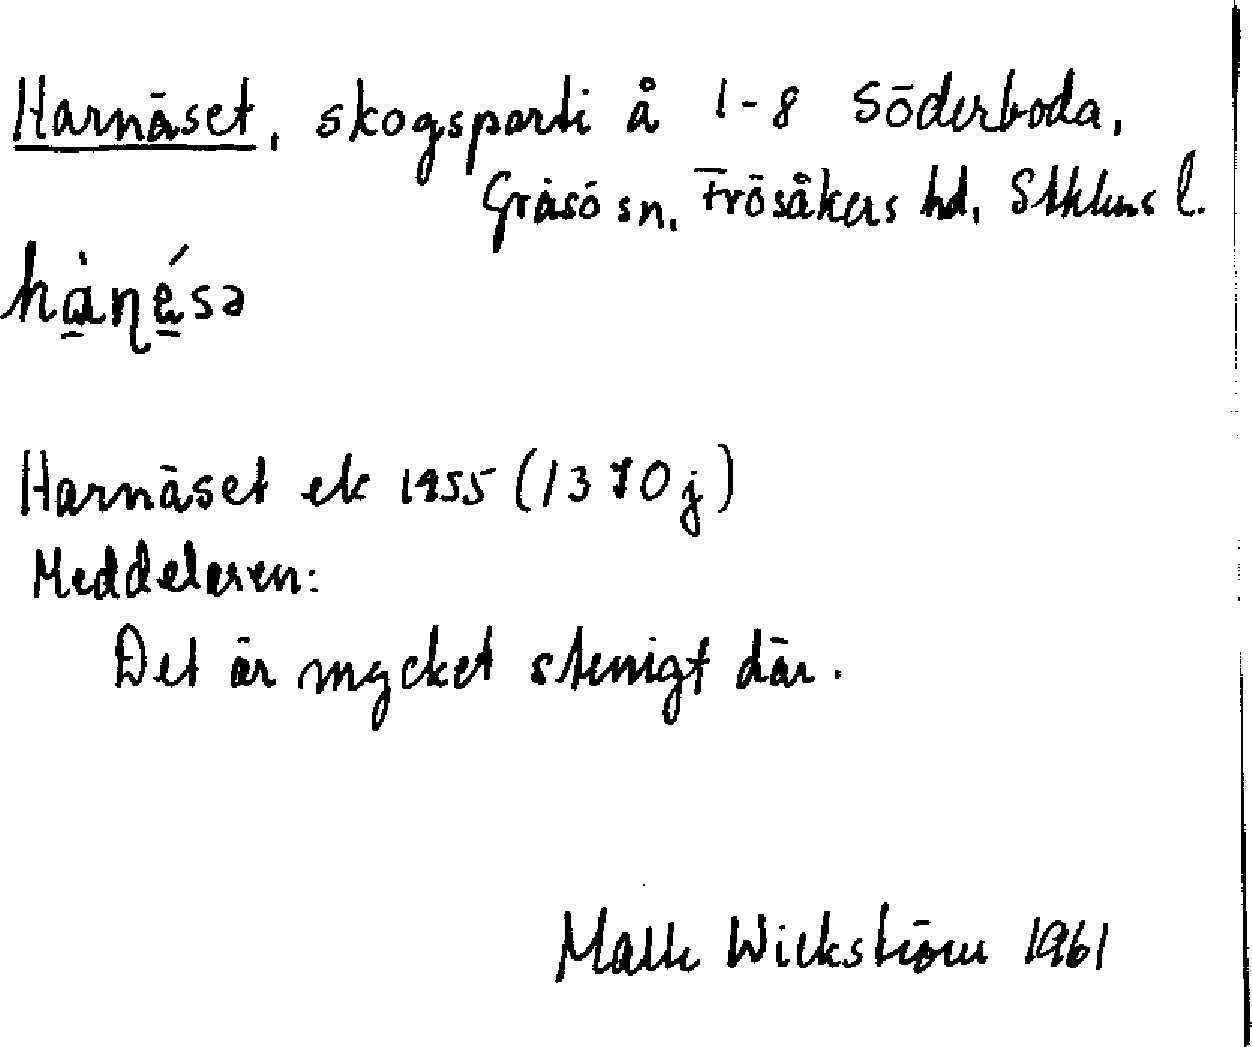 Harnäset, skogsparti å 1-8 Söderboda,
Gräsö sn, Frösåkers hd, Sthlms l.
Harnäset ek 1955 (1370j)
Meddelaren:
Det är mycket stenigt där.
Wickström 1961